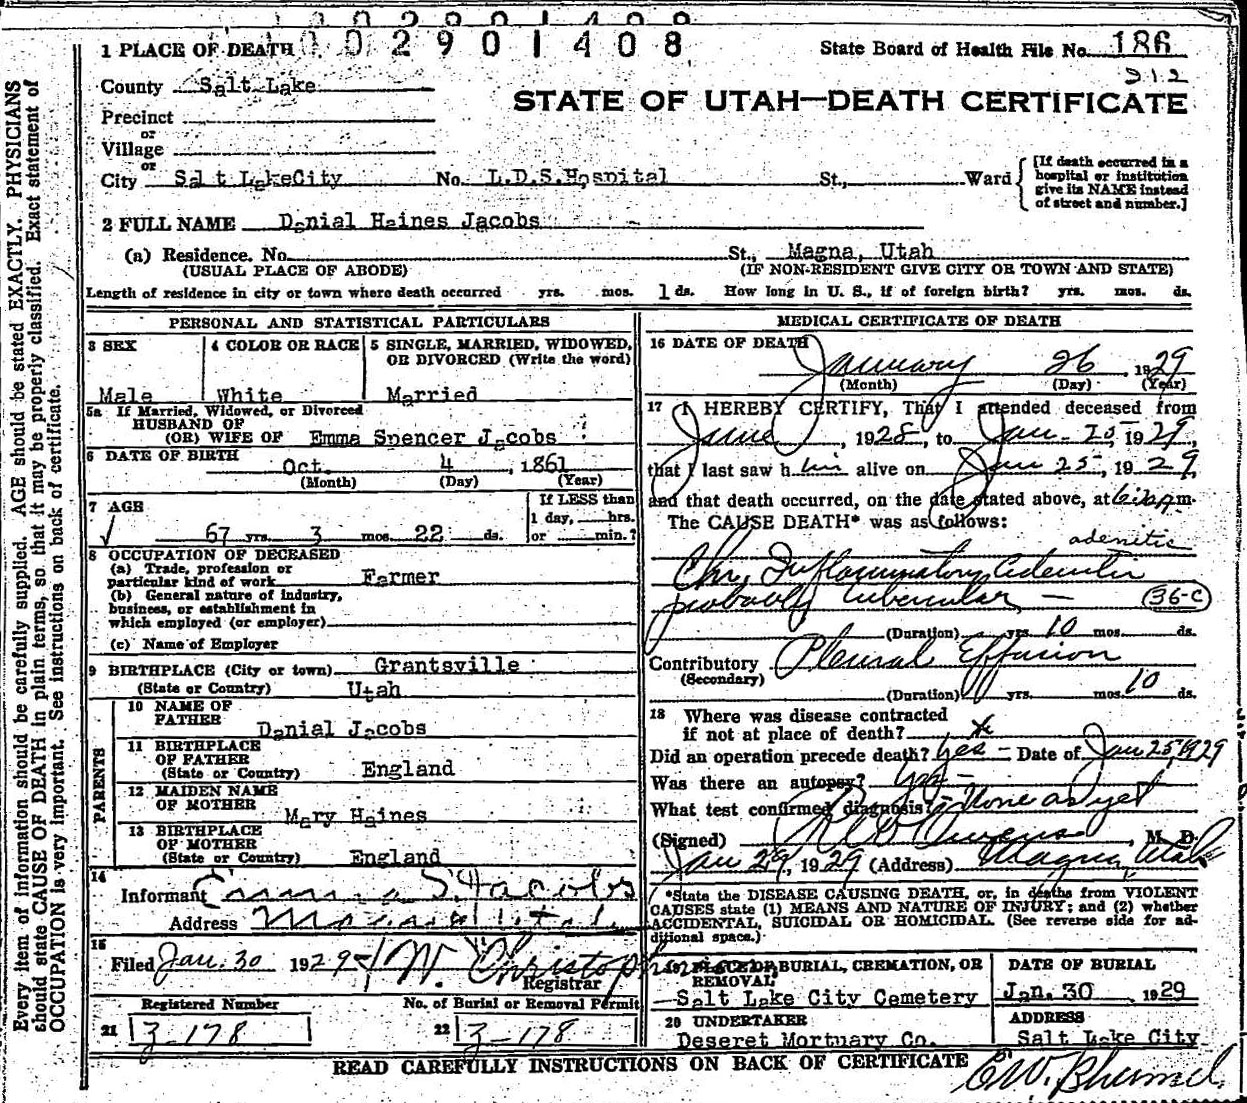 0 0 2 9 0 1 4 0 8
1 PLACE OF DEATH
State Board of Health File No. 186
312
County Salt Lake
STATE OF UTAH—DEATH CERTIFICATE
Precinct
or
Village
or
City Salt LakeCity No. L.D.S.Hospital St., Ward
[If death occurred in a hospital or institution give its NAME instead of street and number.]
2 FULL NAME Danial Haines Jacobs
(a) Residence. No. St., Magna, Utah
(USUAL PLACE OF ABODE) (IF NON-RESIDENT GIVE CITY OR TOWN AND STATE)
Length of residence in city or town where death occurred yrs. mos. 1 ds. How long in U. S., if of foreign birth? yrs. mos. ds.
PERSONAL AND STATISTICAL PARTICULARS
3 SEX
Male
4 COLOR OR RACE
White
5 SINGLE, MARRIED, WIDOWED, OR DIVORCED (Write the word)
Married
5a If Married, Widowed, or Divorced
HUSBAND OF
(OR) WIFE OF Emma Spencer Jacobs
6 DATE OF BIRTH
Oct. 4, 1861
(Month) (Day) (Year)
7 AGE
67 yrs. 3 mos. 22 ds.
If LESS than
1 day, hrs.
or min.?
8 OCCUPATION OF DECEASED
(a) Trade, profession or
particular kind of work Farmer
(b) General nature of industry,
business, or establishment in
which employed (or employer)
(c) Name of Employer
9 BIRTHPLACE (City or town) Grantsville
(State or Country) Utah
PARENTS
10 NAME OF
FATHER
Danial Jacobs
11 BIRTHPLACE
OF FATHER
(State or Country) England
12 MAIDEN NAME
OF MOTHER
Mary Haines
13 BIRTHPLACE
OF MOTHER
(State or Country) England
14
Informant Emma S. Jacobs
Address Magna Utah
15
Filed Jan. 30 1929
Registrar
Registered Number
21 3-178
No. of Burial or Removal Permit
22 3-178
MEDICAL CERTIFICATE OF DEATH
16 DATE OF DEATH
January 26, 1929
(Month) (Day) (Year)
17 I HEREBY CERTIFY, That I attended deceased from
June, 1928, to Jan-25, 1929,
that I last saw him alive on Jan 25, 1929,
and that death occurred, on the date stated above, at m.
The CAUSE DEATH* was as follows:
adenitis
Chr. Inflammatory adenitis
probably tubercular — 36-C
(Duration) yrs. 10 mos. ds.
Contributory Pleural Effusion
(Secondary)
(Duration) yrs. mos. 10 ds.
18 Where was disease contracted
if not at place of death?
Did an operation precede death? Yes – Date of Jan 25, 1929
Was there an autopsy? Yes –
What test confirmed diagnosis? None as yet
(Signed) Owens, M. D.
Jan 29, 1929 (Address) Magna, Utah
*State the DISEASE CAUSING DEATH, or, in deaths from VIOLENT
CAUSES state (1) MEANS AND NATURE OF INJURY; and (2) whether
ACCIDENTAL, SUICIDAL OR HOMICIDAL. (See reverse side for ad-
ditional space.)
19 PLACE OF BURIAL, CREMATION, OR
REMOVAL
Salt Lake City Cemetery
DATE OF BURIAL
Jan. 30, 1929
20 UNDERTAKER
Deseret Mortuary Co.
ADDRESS
Salt Lake City
READ CAREFULLY INSTRUCTIONS ON BACK OF CERTIFICATE
Every item of information should be carefully supplied. AGE should be stated EXACTLY. PHYSICIANS
should state CAUSE OF DEATH in plain terms, so that it may be properly classified. Exact statement of
OCCUPATION is very important. See instructions on back of certificate.